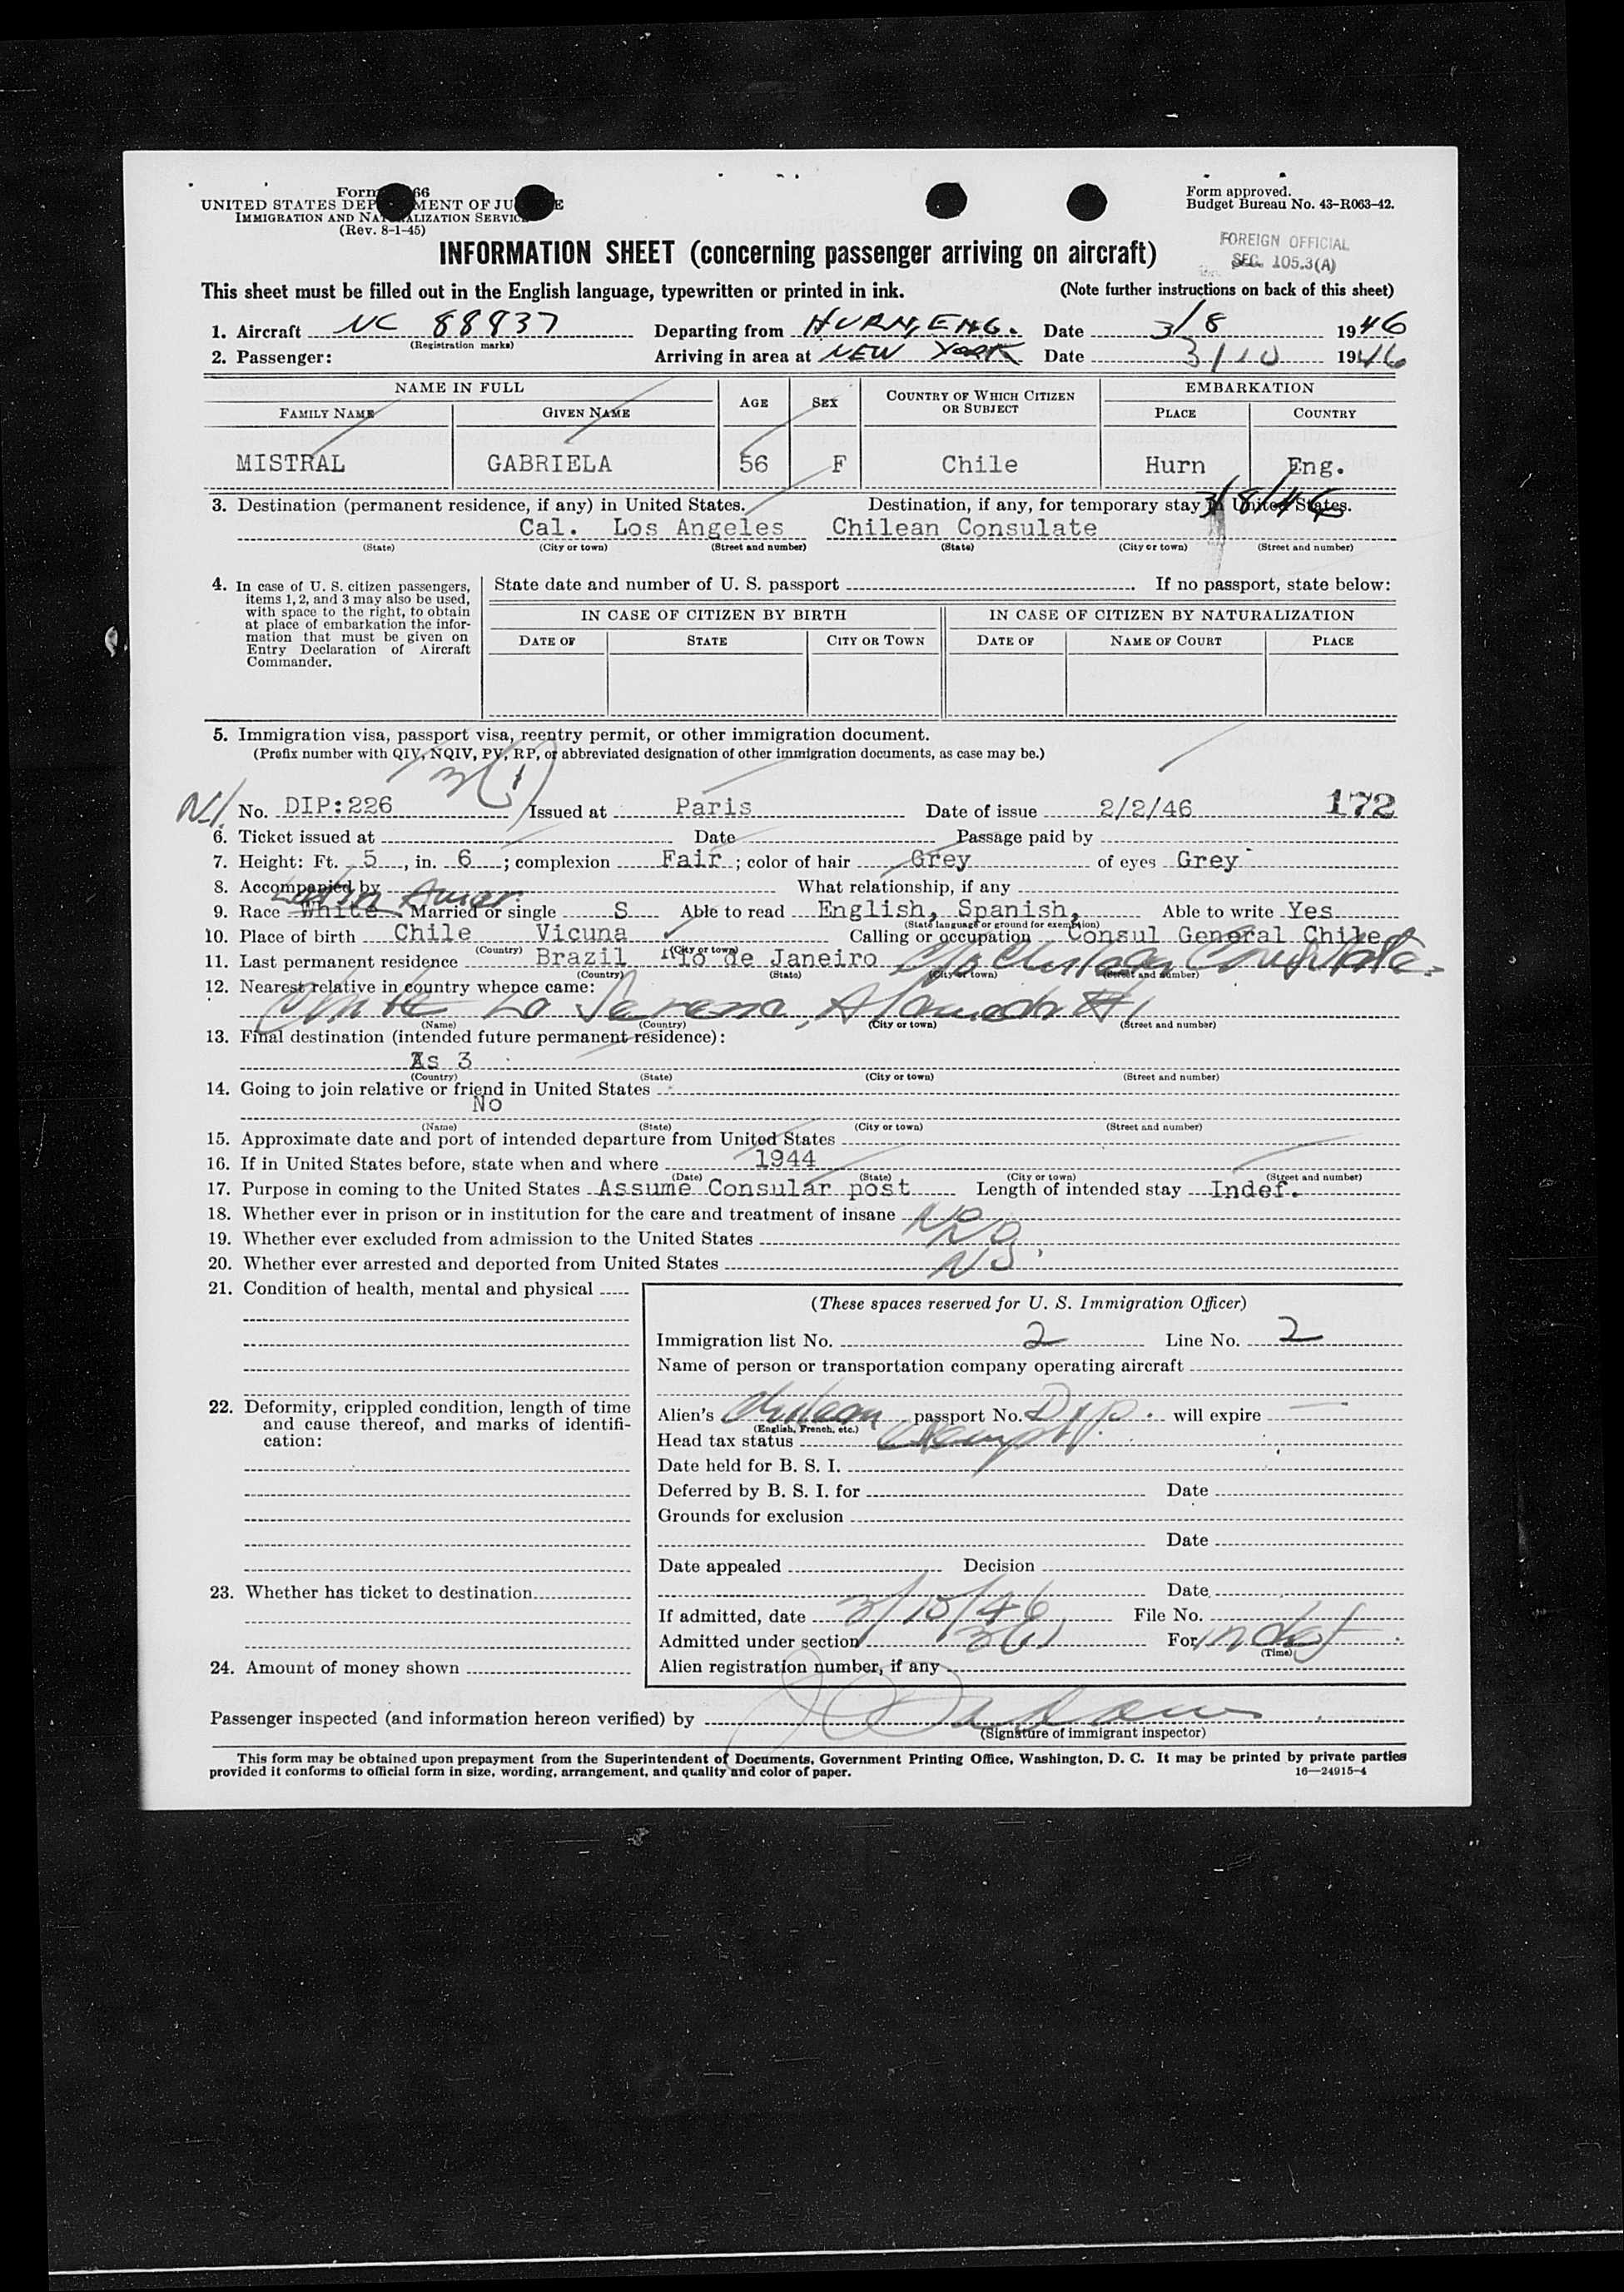 Form 66
UNITED STATES DEP MENT OF JU E
IMMIGRATION AND NA ALIZATION SERVIC
(Rev. 8-1-45)
Form approved.
Budget Bureau No. 43-R063-42.
INFORMATION SHEET (concerning passenger arriving on aircraft)
FOREIGN OFFICIAL
SEC. 105.3(A)
This sheet must be filled out in the English language, typewritten or printed in ink. (Note further instructions on back of this sheet)
1. Aircraft NC 88837 Departing from HURN, ENG. Date 3/8 1946
(Registration marks)
2. Passenger: Arriving in area at NEW YORK Date 3/10 1946
NAME IN FULL AGE SEX COUNTRY OF WHICH CITIZEN OR SUBJECT EMBARKATION
FAMILY NAME GIVEN NAME PLACE COUNTRY
MISTRAL GABRIELA 56 F Chile Hurn Eng.
3/8/46
3. Destination (permanent residence, if any) in United States. Destination, if any, for temporary stay in United States.
Cal. Los Angeles Chilean Consulate
(State) (City or town) (Street and number) (State) (City or town) (Street and number)
4. In case of U. S. citizen passengers, items 1, 2, and 3 may also be used, with space to the right, to obtain at place of embarkation the information that must be given on Entry Declaration of Aircraft Commander.
State date and number of U. S. passport If no passport, state below:
IN CASE OF CITIZEN BY BIRTH IN CASE OF CITIZEN BY NATURALIZATION
DATE OF STATE CITY OR TOWN DATE OF NAME OF COURT PLACE
5. Immigration visa, passport visa, reentry permit, or other immigration document.
(Prefix number with QIV, NQIV, PV, RP, or abbreviated designation of other immigration documents, as case may be.)
3(1)
No. DIP:226 Issued at Paris Date of issue 2/2/46 172
6. Ticket issued at Date Passage paid by
7. Height: Ft. 5, in. 6; complexion Fair; color of hair Grey of eyes Grey
8. Accompanied by What relationship, if any
Latin Amer.
9. Race White. Married or single S Able to read English, Spanish, Able to write Yes
(State language or ground for exemption)
10. Place of birth Chile Vicuna Calling or occupation Consul General Chile
(Country) (City or town)
11. Last permanent residence Brazil Rio de Janeiro
(Country) (State) (City or town) (Street and number)
12. Nearest relative in country whence came:
(Name) (Country) (City or town) (Street and number)
13. Final destination (intended future permanent residence):
As 3
(Country) (State) (City or town) (Street and number)
14. Going to join relative or friend in United States
No
(Name) (State) (City or town) (Street and number)
15. Approximate date and port of intended departure from United States
16. If in United States before, state when and where 1944
(Date) (State) (City or town) (Street and number)
17. Purpose in coming to the United States Assume Consular post Length of intended stay Indef.
18. Whether ever in prison or in institution for the care and treatment of insane No
19. Whether ever excluded from admission to the United States No
20. Whether ever arrested and deported from United States No
21. Condition of health, mental and physical
22. Deformity, crippled condition, length of time and cause thereof, and marks of identification:
23. Whether has ticket to destination
24. Amount of money shown
(These spaces reserved for U. S. Immigration Officer)
Immigration list No. 2 Line No. 2
Name of person or transportation company operating aircraft
Alien's Chilean passport No. Dip. will expire
(English, French, etc.)
Head tax status Exempt
Date held for B. S. I.
Deferred by B. S. I. for Date
Grounds for exclusion
Date
Date appealed Decision
Date
If admitted, date 3/10/46 File No.
Admitted under section 3(1) For indef
(Time)
Alien registration number, if any
Passenger inspected (and information hereon verified) by
(Signature of immigrant inspector)
This form may be obtained upon prepayment from the Superintendent of Documents, Government Printing Office, Washington, D. C. It may be printed by private parties
provided it conforms to official form in size, wording, arrangement, and quality and color of paper. 16—24915-4